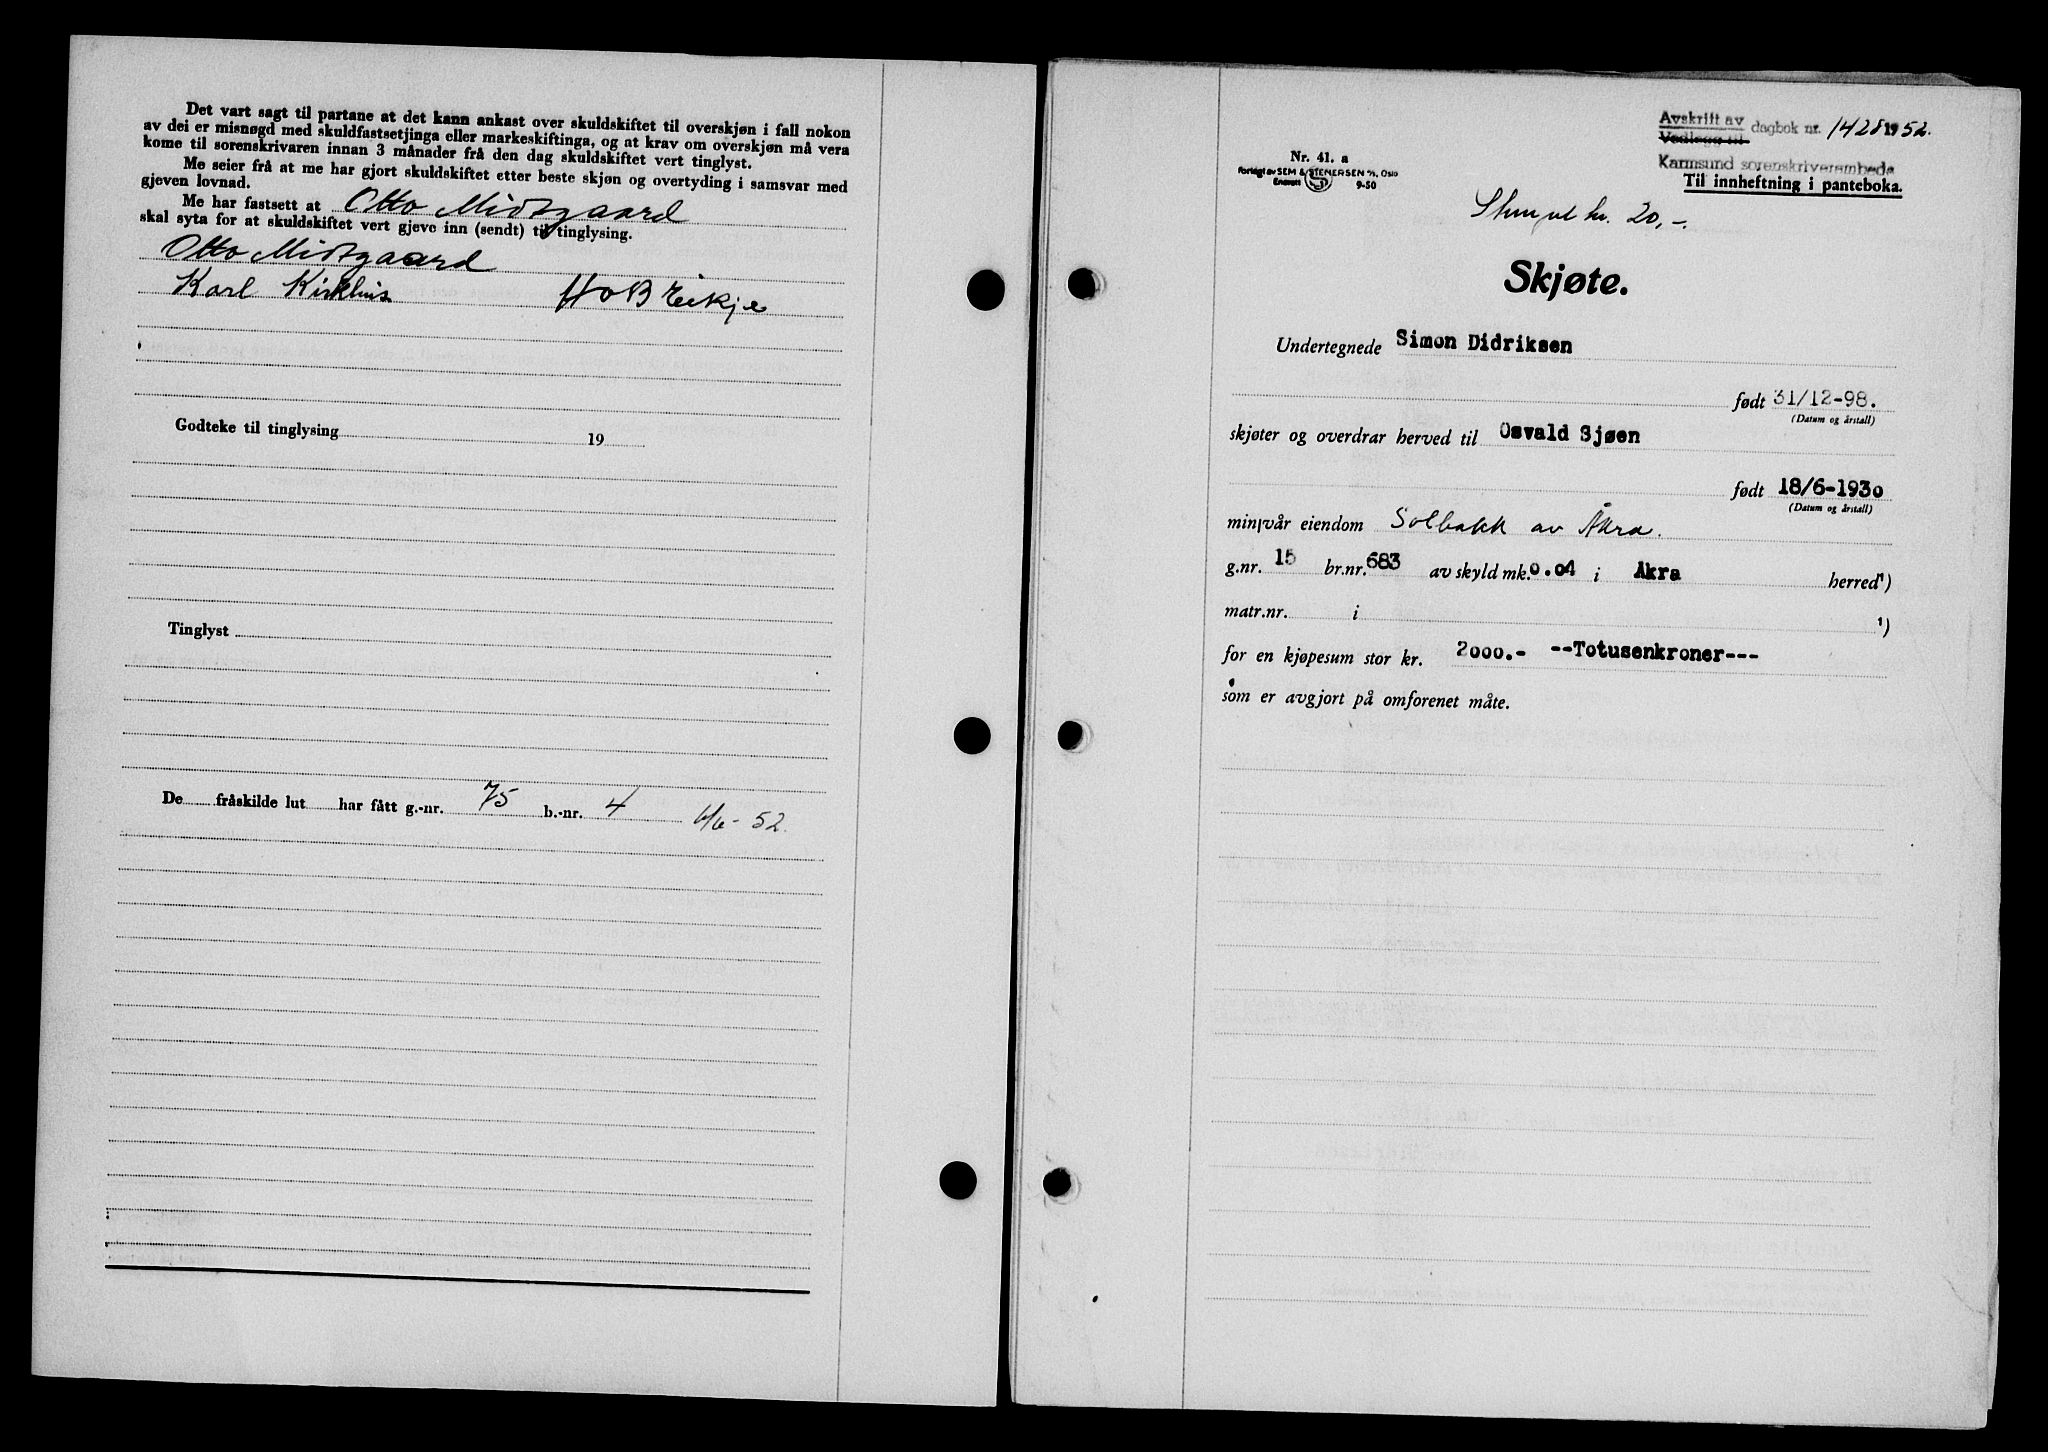 Det vart sagt til partane at det kann ankast over skuldskiftet til overskjøn i fall nokon
av dei er misnøgd med skuldfastsetjinga eller markeskiftinga, og at krav om overskjøn må vera
kome til sorenskrivaren innan 3 månader frå den dag skuldskiftet vert tinglyst.
Me seier frå at me har gjort skuldskiftet etter beste skjøn og overtyding i samsvar med
gjeven lovnad.
Me har fastsett at Otto Midtgaard
skal syta for at skuldskiftet vert gjeve inn (sendt) til tinglysing.
Otto Midtgaard
Karl Kirkhus
Godteke til tinglysing 19
Tinglyst
De fråskilde lut har fått g.-nr. 75 b.-nr. 4 6/6-52.
Avskrift av
Vedlegg til
dagbok nr. 1428 1952.
Karmsund sorenskriverembede
Til innheftning i panteboka.
Nr. 41. a
Forlagt av SEM & STENERSEN A/S, Oslo
Enerett 9-50
Stempel kr. 20,-.
Skjøte.
Undertegnede Simon Didriksen
født 31/12-98.
(Datum og årstall)
skjøter og overdrar herved til Osvald Sjøen
født 18/6-1930
(Datum og årstall)
min/vår eiendom Solbakk av Åkra.
g.nr. 15 br.nr. 683 av skyld mk. 0.04 i Akra herred¹)
matr.nr. i ¹)
for en kjøpesum stor kr. 2000.- --Totusenkroner---
som er avgjort på omforenet måte.